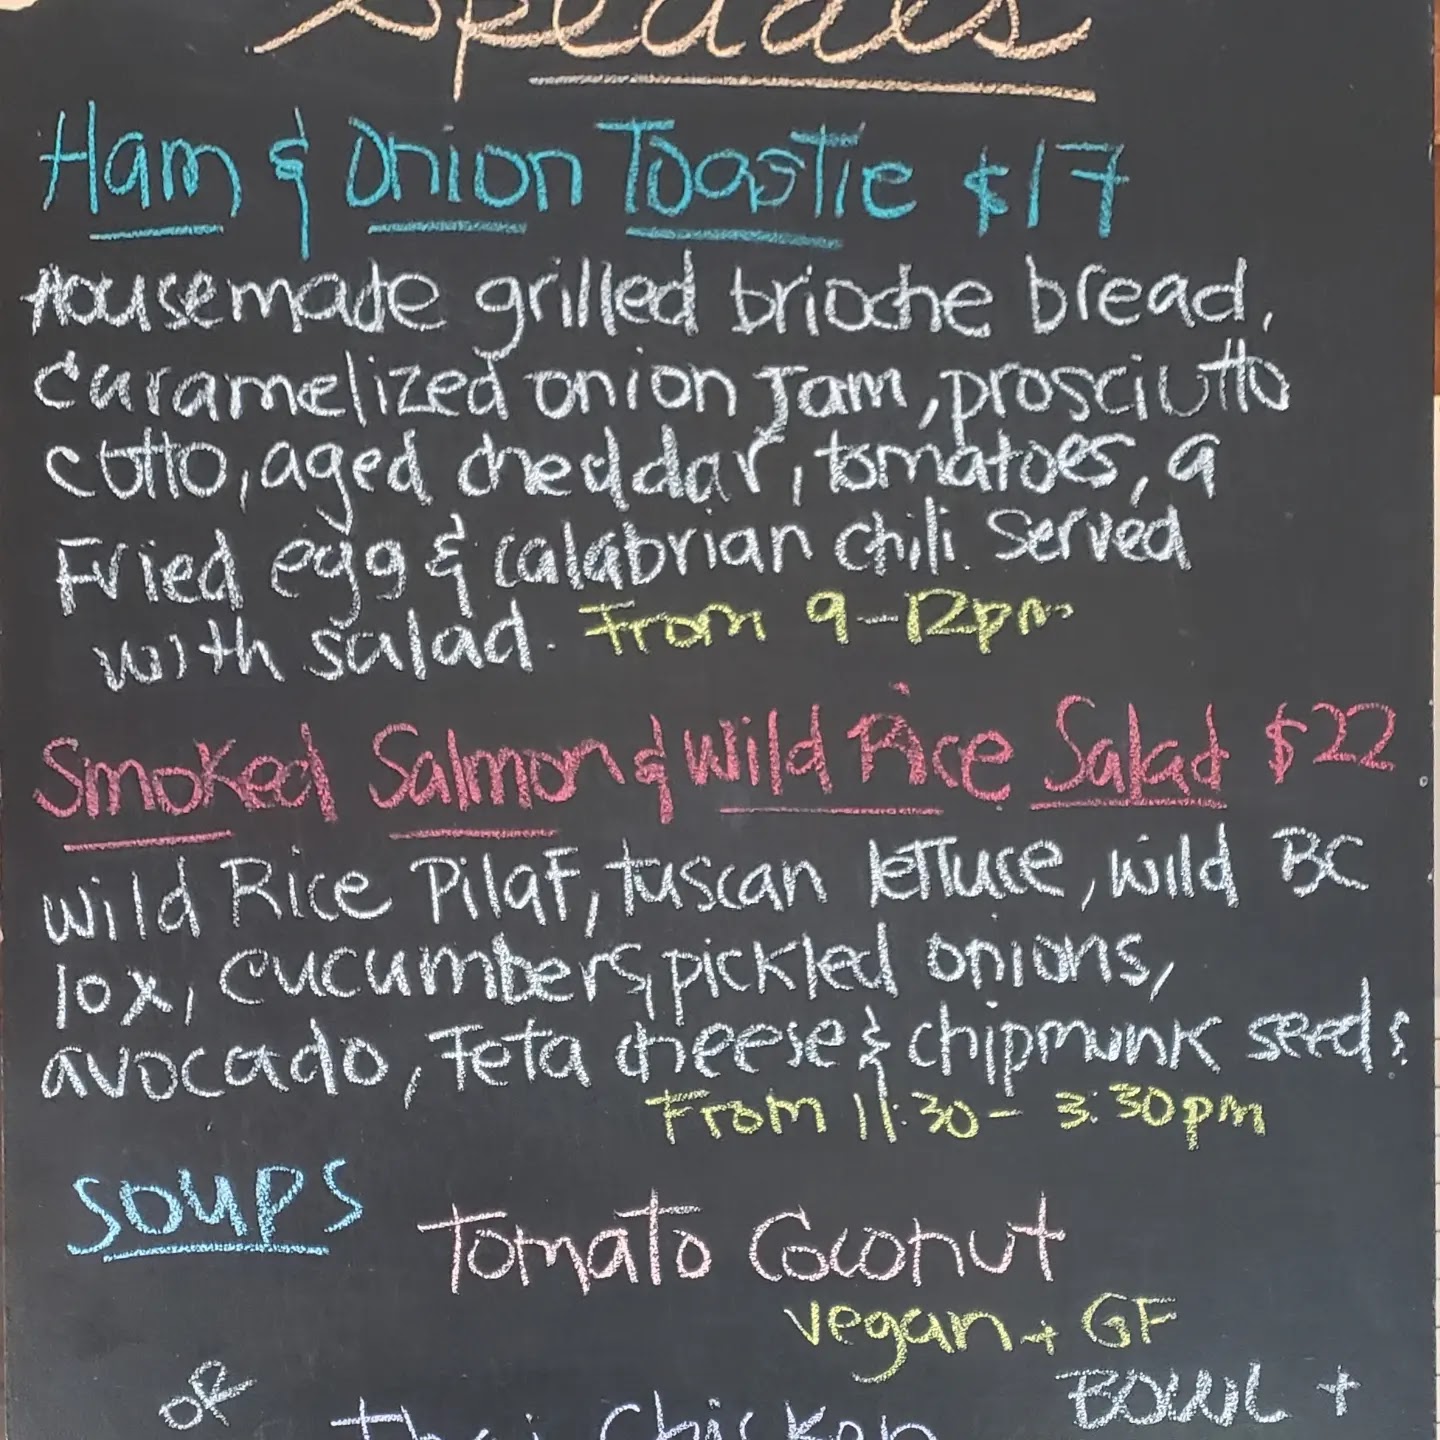 Specials
Ham & Onion Toastie $17
Housemade grilled brioche bread,
caramelized onion jam, prosciutto
cotto, aged cheddar, tomatoes, a
Fried egg & calabrian chili. Served
with salad. From 9-12pm
Smoked Salmon & Wild Rice Salad $22
Wild Rice Pilaf, tuscan lettuce, wild BC
lox, cucumbers, pickled onions,
avocado, Feta cheese & chipmunk seeds
From 11:30 - 3:30pm
SOUPS
Tomato Coconut
vegan + GF
OR
BOWL +
Thai Chicken